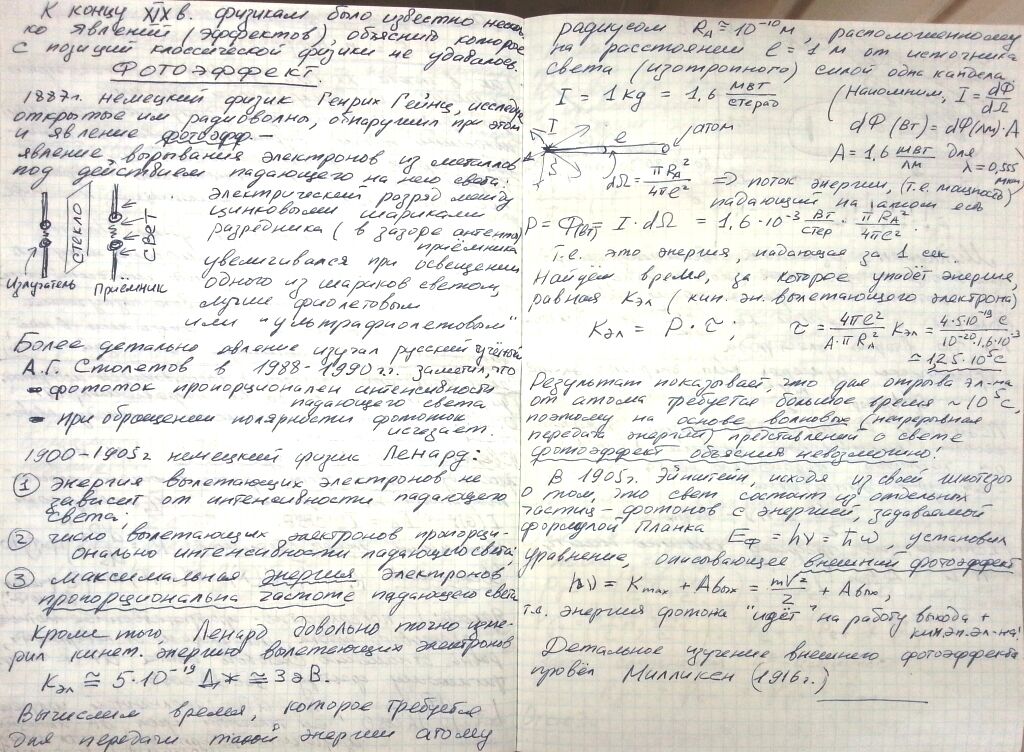 К концу XIX в. физикам было известно несколь-
ко явлений (эффектов), объяснить которое
с позиций классической физики не удавалось.
ФОТОЭФФЕКТ.
1887г. немецкий физик Генрих Гейнц, исследуя
открытые им радиоволны, обнаружил при этом
и явление фотоэфф. —
явление вырывания электронов из металлов
под действием падающего на него света:
электрический разряд между
цинковыми шариками
разрядника (в зазоре антенны)
приёмника
увеличивался при освещении
одного из шариков светом,
лучше фиолетовым
или "ультрафиолетовым"
СТЕКЛО
СВЕТ
Излучатель Приёмник
Более детально явление изучал русский учёный
А.Г. Столетов в 1988-1990 гг. заметил, что
- фототок пропорционален интенсивности
падающего света
- при обращении полярности фототок
исчезает.
1900-1905г немецкий физик Ленард:
① энергия вылетающих электронов не
зависит от интенсивности падающего
света;
② число вылетающих электронов пропорци-
онально интенсивности падающего света;
③ максимальная энергия электронов
пропорциональна частоте падающего света
Кроме того, Ленард довольно точно изме-
рил кинет. энергию вылетающих электронов
Kэл ≅ 5·10⁻¹⁹ Дж ≅ 3 эВ.
Вычислим время, которое требуется
для передачи такой энергии атому
радиусом RA ≅ 10⁻¹⁰ м, расположенному
на расстоянии ℓ = 1 м от источника
света (изотропного) силой одна кандела
I = 1 кд = 1,6 мВт/стерад
(Напомним, I = dФ/dΩ
dФ (Вт) = dФ(лм)·A
A = 1,6 мВт/лм для
λ = 0,555 мкм)
I
ℓ
атом
S
dΩ = πRA²/4πℓ² ⇒ поток энергии, (т.е. мощность)
падающий на атом есть
P = Ф(Вт) I·dΩ = 1,6·10⁻³ Вт/стер · πRA²/4πℓ².
Т.е. это энергия, падающая за 1 сек.
Найдём время, за которое упадёт энергия,
равная Kэл (кин. эн. вылетающего электрона)
Kэл = P·τ; τ = 4πℓ²/A·πRA² Kэл = 4·5·10⁻¹⁹ c/10⁻²⁰·1,6·10⁻³
≅ 1,25·10⁵ c
Результат показывает, что для отрыва эл-на
от атома требуется большое время ~10⁵ с,
поэтому на основе волновых (непрерывная
передача энергии) представлений о свете
фотоэффект объяснить невозможно!
В 1905г. Эйнштейн, исходя из своей гипотезы
о том, что свет состоит из отдельных
частиц - фотонов с энергией, задаваемой
формулой Планка
Eф = hν = ħω, установил
уравнение, описывающее внешний фотоэффект
hν = Kmax + Aвых = mV²/2 + Aвых,
т.е. энергия фотона "идёт" на работу выхода +
кин.эн.эл-на!
Детальное изучение внешнего фотоэффекта
провёл Милликен (1916г.)